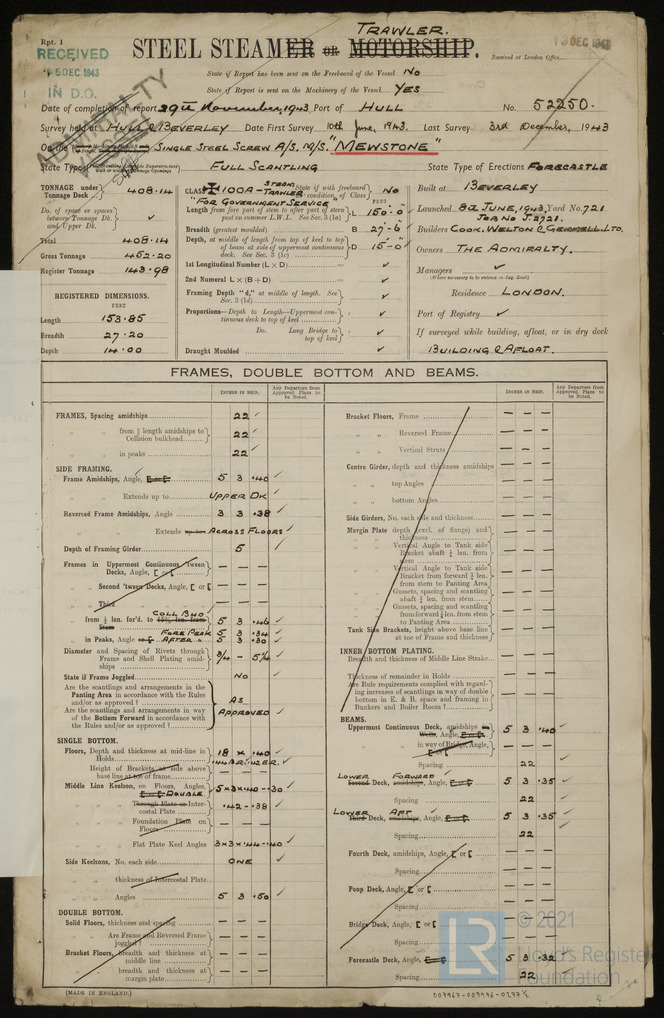 Rpt. 1
RECEIVED
15 DEC 1943
IN D.O.
TRAWLER.
STEEL STEAMER OR MOTORSHIP.
13 DEC 1943
Received at London Office
State if Report has been sent on the Freeboard of the Vessel No
State if Report is sent on the Machinery of the Vessel YES
ADMIRALTY
Date of completion of report 29th November, 1943 Port of HULL No. 52250.
Survey held at HULL & BEVERLEY Date First Survey 10th June, 1943. Last Survey 3rd December, 1943
On the SINGLE STEEL SCREW A/S, M/S. "MEWSTONE"
State Type FULL SCANTLING State Type of Erections FORECASTLE
TONNAGE under Tonnage Deck 408.14
Do. of space or spaces between Tonnage Dk. and Upper Dk. ✓
Total 408.14
Gross Tonnage 452.20
Register Tonnage 143.98
REGISTERED DIMENSIONS.
FEET
Length 153.85
Breadth 27.20
Depth 14.00
CLASS ✠ 100A- STEAM TRAWLER State if with freeboard condition of Class No
"FOR GOVERNMENT SERVICE" FEET
Length from fore part of stem to after part of stern post on summer L.W.L. See Sec. 3 (1a) L 150.0
Breadth (greatest moulded) B 27-6
Depth, at middle of length from top of keel to top of beam at side of uppermost continuous deck. See Sec. 3 (1c) D 15-0
1st Longitudinal Number (L × D) ✓
2nd Numeral L × (B + D) ✓
Framing Depth "d," at middle of length. See Sec. 3 (1d) ✓
Proportions—Depth to Length—Uppermost continuous deck to top of keel ✓
Do. Long Bridge to top of keel ✓
Draught Moulded ✓
Built at BEVERLEY
Launched 8th JUNE, 1943. Yard No. 721
JOB NO J.2721.
Builders COOK, WELTON & GEMMELL. LTD.
Owners THE ADMIRALTY.
Managers ✓
(Where necessary to be entered in Reg. Book)
Residence LONDON.
Port of Registry ✓
If surveyed while building, afloat, or in dry dock
BUILDING & AFLOAT.
FRAMES, DOUBLE BOTTOM AND BEAMS.
INCHES IN SHIP. Any Departure from Approved Plans to be Noted.
FRAMES, Spacing amidships 22 ✓
" " from ⅗ length amidships to Collision bulkhead 22 ✓
" " in peaks 22 ✓
SIDE FRAMING.
Frame Amidships, Angle, [ or [ 5 3 .40 ✓
" " Extends up to UPPER DK ✓
Reversed Frame Amidships, Angle 3 3 .38 ✓
" " Extends up to ACROSS FLOORS ✓
Depth of Framing Girder 5 ✓
Frames in Uppermost Continuous 'tween Decks, Angle, [ or [ — — —
" Second 'tween Decks, Angle, [ or [ — — —
" Third — — —
COLL BHD
" from ⅕ len. for'd. to 15% len. from Stem 5 3 .46 ✓
FORE PEAK 5 3 .34 ✓
" in Peaks, Angle or [ AFTER " 5 3 .30 ✓
Diameter and Spacing of Rivets through Frame and Shell Plating amidships 3/4 — 5¼ ✓
State if Frame Joggled No ✓
Are the scantlings and arrangements in the Panting Area in accordance with the Rules and/or as approved?
Are the scantlings and arrangements in way of the Bottom Forward in accordance with the Rules and/or as approved?
AS APPROVED ✓
SINGLE BOTTOM.
Floors, Depth and thickness at mid-line in Holds 18 × .40 ✓
Height of Brackets at side above base line at toe of frame — — —
Middle Line Keelson, on Floors, Angles, [ or [ DOUBLE 5×3×.40-.30 ✓
" " Through Plate or Intercostal Plate .42-.38 ✓
" " Foundation Plate on Floors — — —
" " Flat Plate Keel Angles 3×3×.44-.40 ✓
Side Keelsons, No. each side ONE ✓
" " thickness of Intercostal Plate — — —
" " Angles 5 3 .50 ✓
DOUBLE BOTTOM.
Solid Floors, thickness and spacing — — —
" " Are Frame and Reversed Frame joggled? — — —
Bracket Floors, breadth and thickness at middle line — — —
" " breadth and thickness at margin plate — — —
(MADE IN ENGLAND.)
INCHES IN SHIP. Any Departure from Approved Plans to be Noted.
Bracket Floors, Frame — — —
" " Reversed Frame — — —
" " Vertical Struts — — —
Centre Girder, depth and thickness amidships — — —
" " top Angles — — —
" " bottom Angles — — —
Side Girders, No. each side and thickness — — —
Margin Plate depth (excl. of flange) and thickness — — —
" " Vertical Angle to Tank side Bracket abaft ¼ len. from stem — — —
" " Vertical Angle to Tank side Bracket from forward ¼ len. from stem to Panting Area — — —
" " Gussets, spacing and scantling abaft ¼ len. from stem — — —
" " Gussets, spacing and scantling from forward ¼ len. from stem to Panting Area — — —
Tank Side Brackets, height above base line at toe of Frame and thickness — — —
INNER BOTTOM PLATING.
Breadth and thickness of Middle Line Strake — — —
Thickness of remainder in Holds — — —
Are Rule requirements complied with regarding increases of scantlings in way of double bottom in E. & B. space and framing in Bunkers and Boiler Room?
BEAMS.
Uppermost Continuous Deck, amidships in Wells, Angle, [ or [ 5 3 .40 ✓
" " in way of Bridge, Angle, [ or [ — — —
Spacing 22 ✓
LOWER FORWARD
Second Deck, amidships, Angle, [ or [ 5 3 .35 ✓
Spacing 22 ✓
LOWER AFT
Third Deck, amidships, Angle, [ or [ 5 3 .35 ✓
Spacing 22
Fourth Deck, amidships, Angle, [ or [ — — —
Spacing — — —
Poop Deck, Angle, [ or [ — — —
Spacing — — —
Bridge Deck, Angle, [ or [ — — —
Spacing — — —
Forecastle Deck, Angle, [ or [ 5 3 .32 ✓
Spacing 22
LR © 2021
Lloyd's Register
Foundation
007967-007976-0277